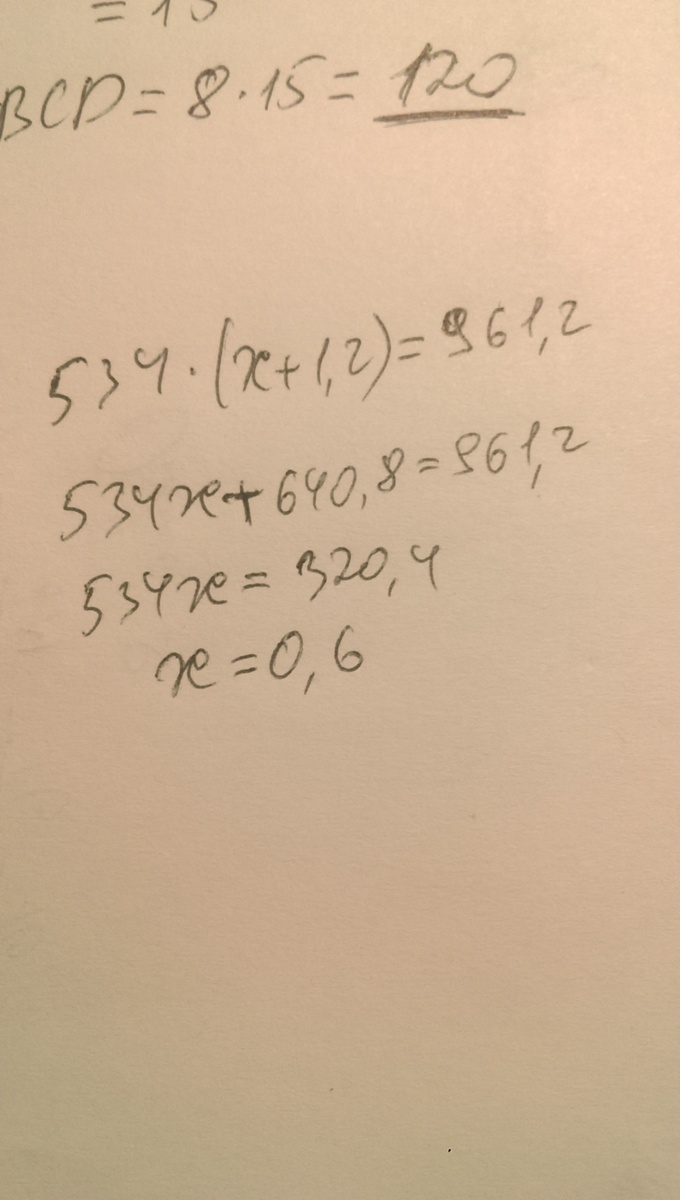 = 15
BCD = 8 · 15 = 120
534 · (x + 1,2) = 961,2
534x + 640,8 = 961,2
534x = 320,4
x = 0,6